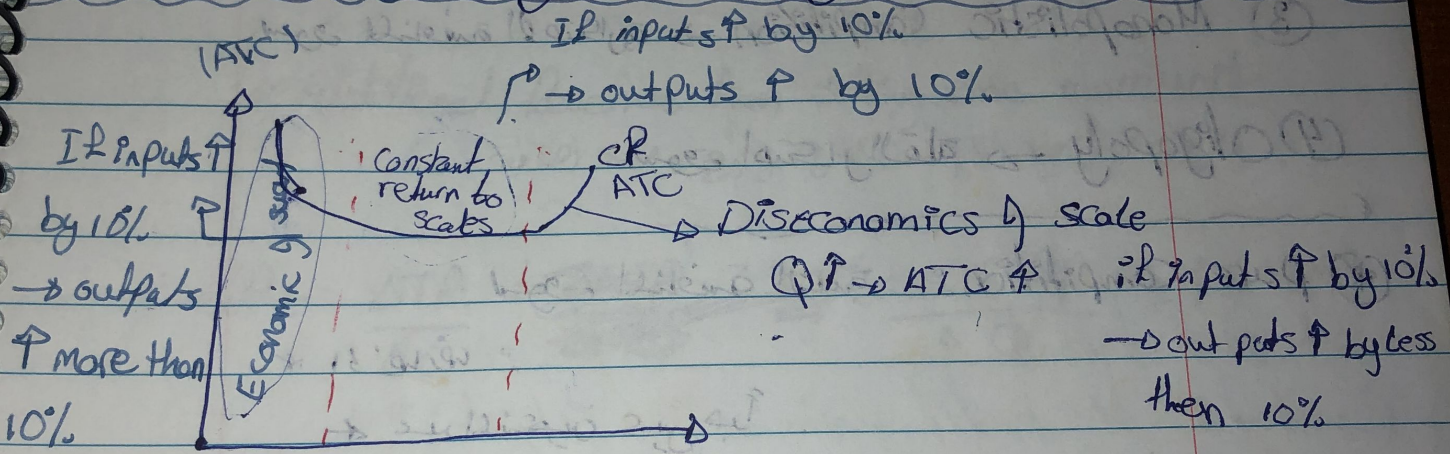 If inputs ↑ by 10%
→ outputs ↑ by 10%
(ATC)
If inputs ↑
by 10%
→ outputs
↑ more than
10%
Economic of
Constant
return to
scales
CR
ATC
Diseconomics of scale
Q↑ → ATC ↑
if inputs ↑ by 10%
→ out puts ↑ by less
then 10%